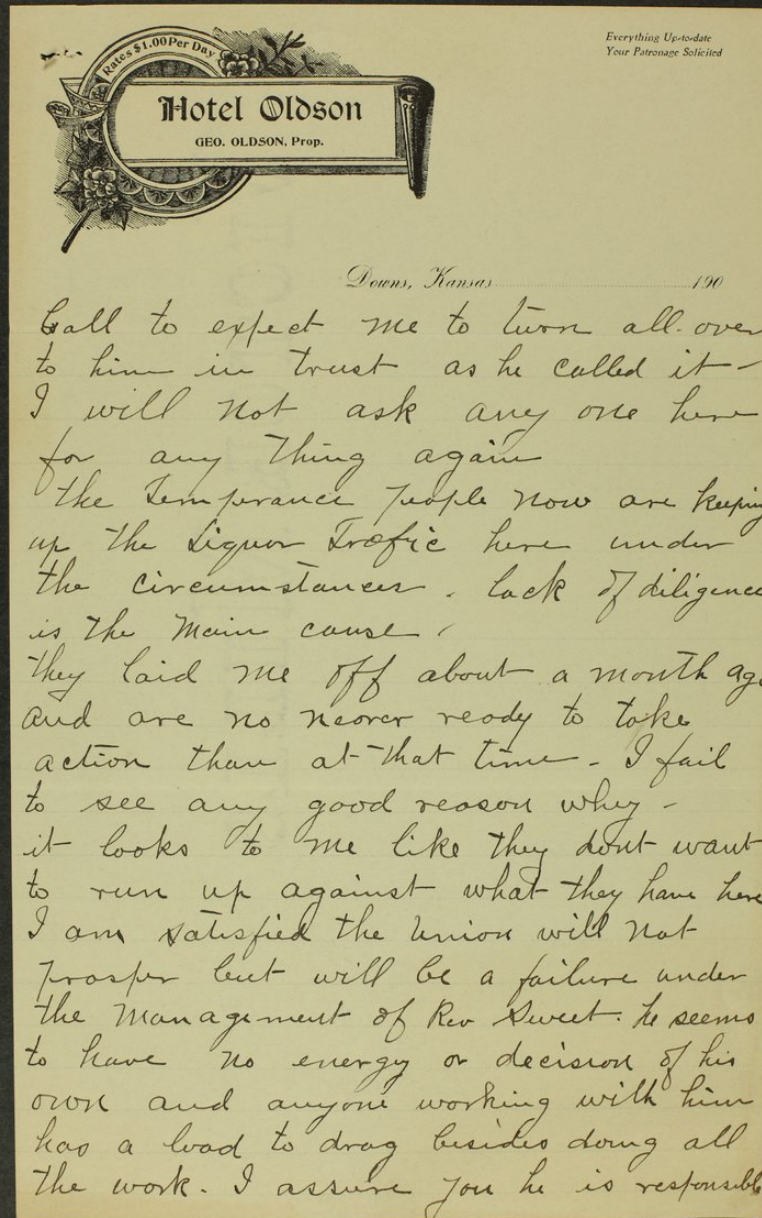 Everything Up-to-date
Your Patronage Solicited
Rates $1.00 Per Day
Hotel Oldson
GEO. OLDSON, Prop.
Downs, Kansas 190
Call to expect me to turn all over
to him in trust as he called it -
I will not ask any one here
for any thing again
the Temperance people now are keeping
up the Liquor Trafic here under
the circumstances. lack of diligence
is the main cause.
they laid me off about a month ago
and are no nearer ready to take
action than at that time - I fail
to see any good reason whey -
it looks to me like they dont want
to run up against what they have here
I am satisfied the Union will not
prosper but will be a failure under
the management of Rev Sweet. he seems
to have no energy or decision of his
own and anyone working with him
has a load to drag besides doing all
the work. I assure you he is responsible